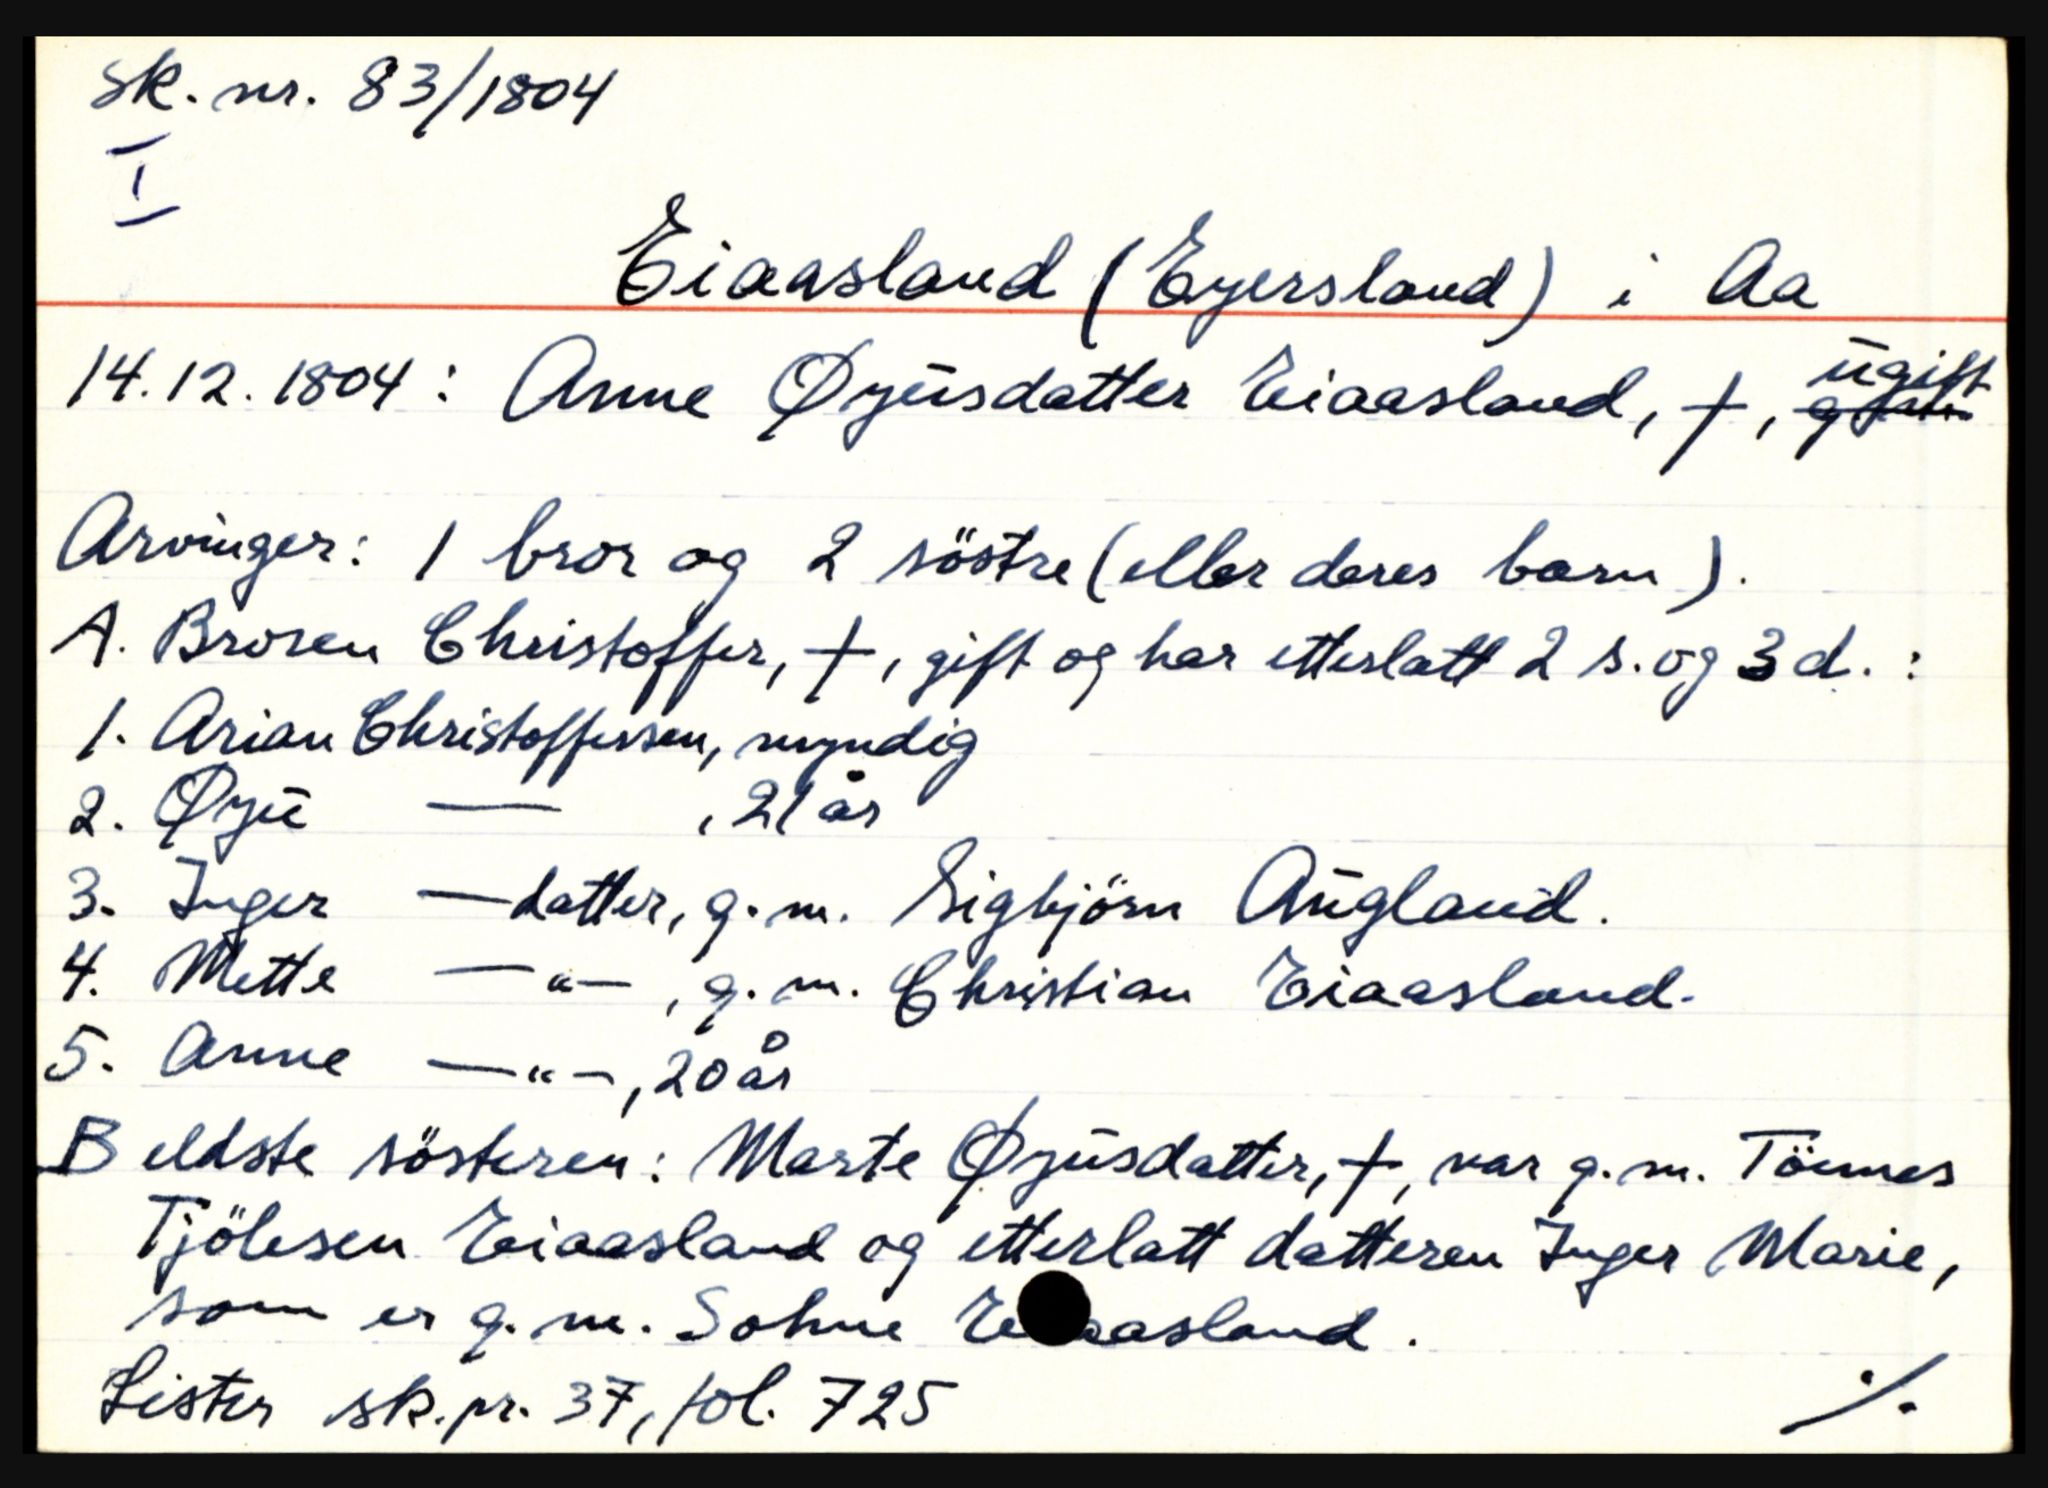 Sk. nr. 83/1804
I
Eiaasland (Eyersland) i Aa
14.12.1804: Anne Øyusdatter Eiaasland, †, ugift
Arvinger: 1 bror og 2 söstre (eller deres barn).
A. Broren Christoffer, †, gift og har etterlatt 2 s. og 3 d. :
1. Arian Christoffersen, myndig
2. Øyu — , 21 år
3. Inger — datter, g. m. Sigbjörn Augland.
4. Mette — " — , g. m. Christian Eiaasland.
5. Anne — " — , 20 år
B eldste sösteren: Marte Øyusdatter, †, var g. m. Tönnes
Tjölesen Eiaasland og etterlatt datteren Inger Marie,
som er g. m. Sohne Eiaasland.
Lister sk. pr. 37, fol. 725
./.